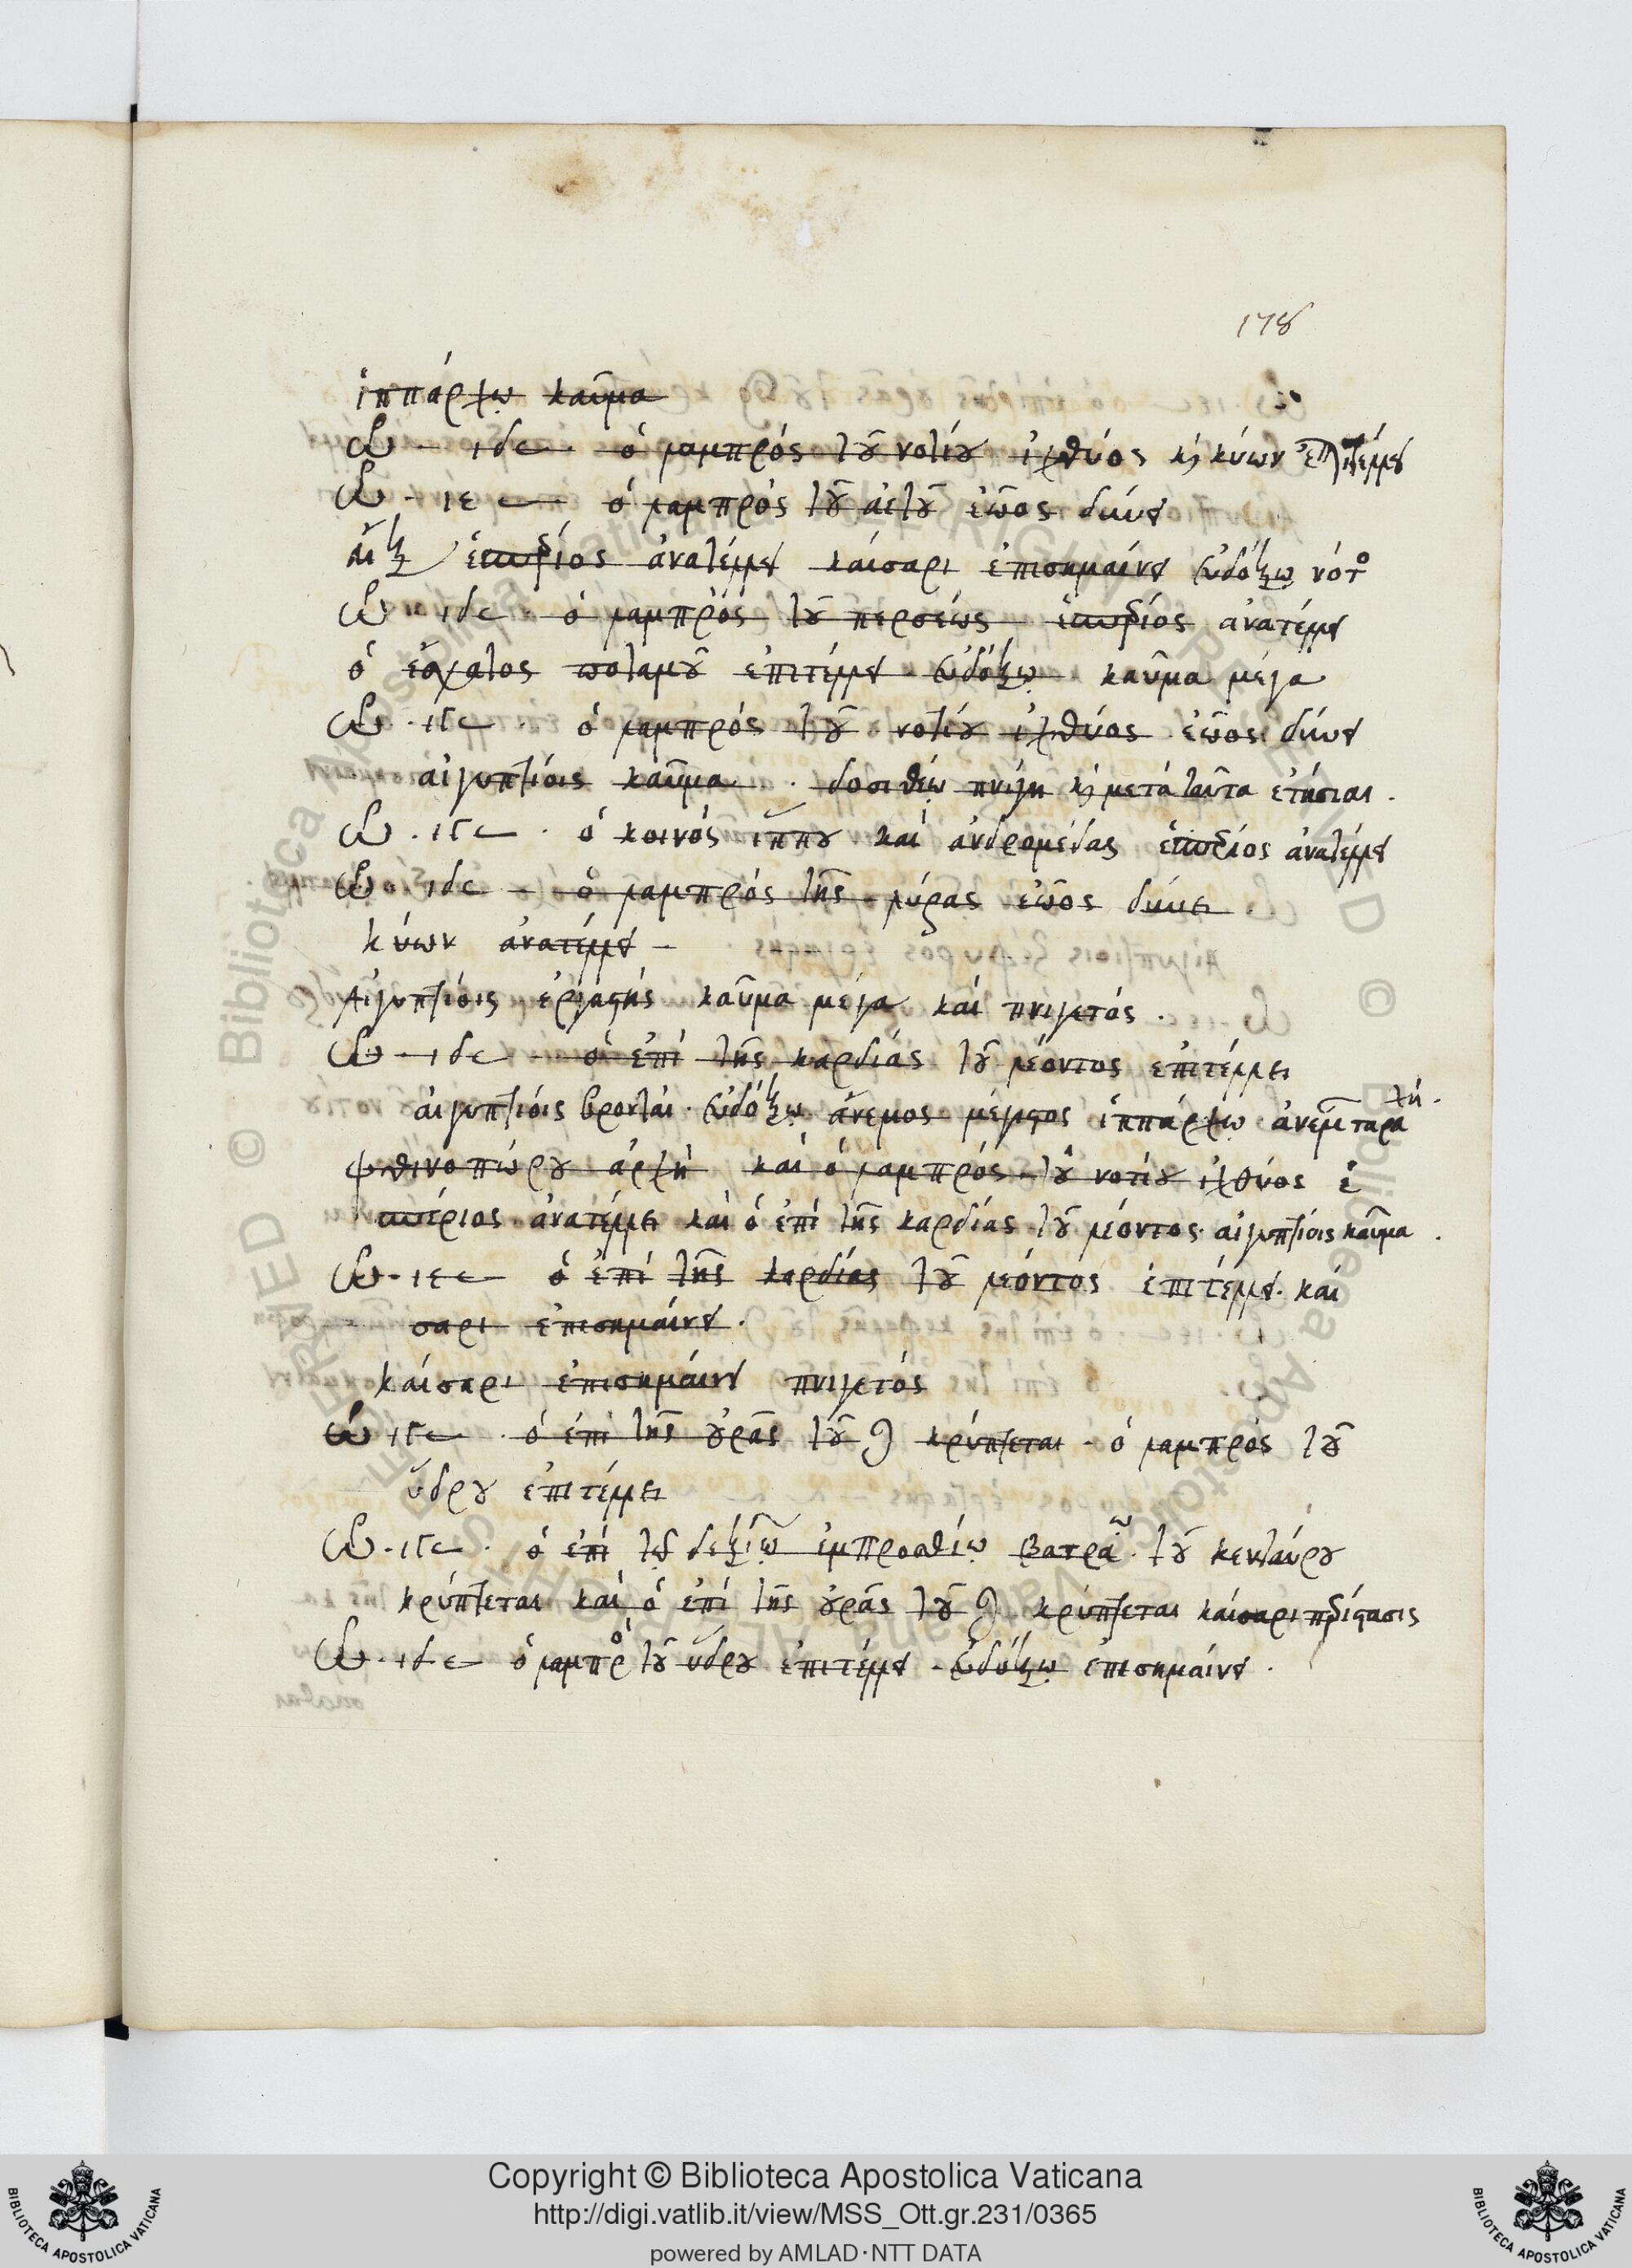 178
ἱππάρχῳ καῦμα
ὡ ιδ ὁ λαμπρός τοῦ νοτίου ἰχθύος κ κύων ἐπιτέλλει
ὡ ιε ὁ λαμπρὸς τοῦ ἀετοῦ ἑῶος δύνει
ἀὶξ ἑσπέριος ἀνατέλλει καίσαρι ἐπισημαίνει εὐδόξῳ νότο
ὡ ιδ ὁ λαμπρός τοῦ περσέως ἑσπέριος ἀνατέλλει
ὁ ἔσχατος ποταμοῦ ἐπιτέλλει εὐδόξῳ καῦμα μέγα
ὡ ιγ ὁ λαμπρός τοῦ νοτίου ἰχθύος ἑῶος δύνει
αἰγυπτίοις καῦμα δοσιθέῳ πνίγη κ μετά ταῦτα ἐτήσιαι
ὡ ιγ ὁ κοινός ἵππου καὶ ἀνδρομέδας ἑσπέριος ἀνατέλλει
ὡ ιδ ὁ λαμπρός τῆς λύρας ἑῶος δύνει
κύων ἀνατέλλει
αἰγυπτίοις καῦμα μέγα καὶ πνιγετός
ὡ ιδ ὁ ἐπί τῆς καρδίας τοῦ λέοντος ἐπιτέλλει
αἰγυπτίοις βρονταί εὐδόξῳ ἄνεμος μέγιστος ἱππάρχῳ ἀνέμ ταρα
χή
φθινοπώρου ἀρχή καί ὁ λαμπρός τοῦ νοτίου ἰχθύος ἑ
σπέριος ἀνατέλλει καὶ ὁ ἐπί τῆς καρδίας τοῦ λέοντος αἰγυπτίοις καῦμα
ὡ ιε ὁ ἐπί τῆς καρδίας τοῦ λέοντος ἐπιτέλλει καί
σαρι ἐπισημαίνει
καίσαρι ἐπισημαίνει πνιγετός
ὡ ιγ ὁ ἐπί τῆς οὐρᾶς τοῦ κρύπτεται ὁ λαμπρός τοῦ
ὕδρου ἐπιτέλλει
ὡ ιγ ὁ ἐπί τῷ δεξιῷ ἐμπροσθίῳ βατρα τοῦ κενταύρου
κρύπτεται καί ὁ ἐπί τῆς οὐρᾶς τοῦ κρύπτεται καίσαρι
ὡ ιδ ὁ λαμπρὸ τοῦ ὕδρου ἐπιτέλλει εὐδόξῳ ἐπισημαίνει
Copyright © Biblioteca Apostolica Vaticana
http://digi.vatlib.it/view/MSS_Ott.gr.231/0365
powered by AMLAD·NTT DATA